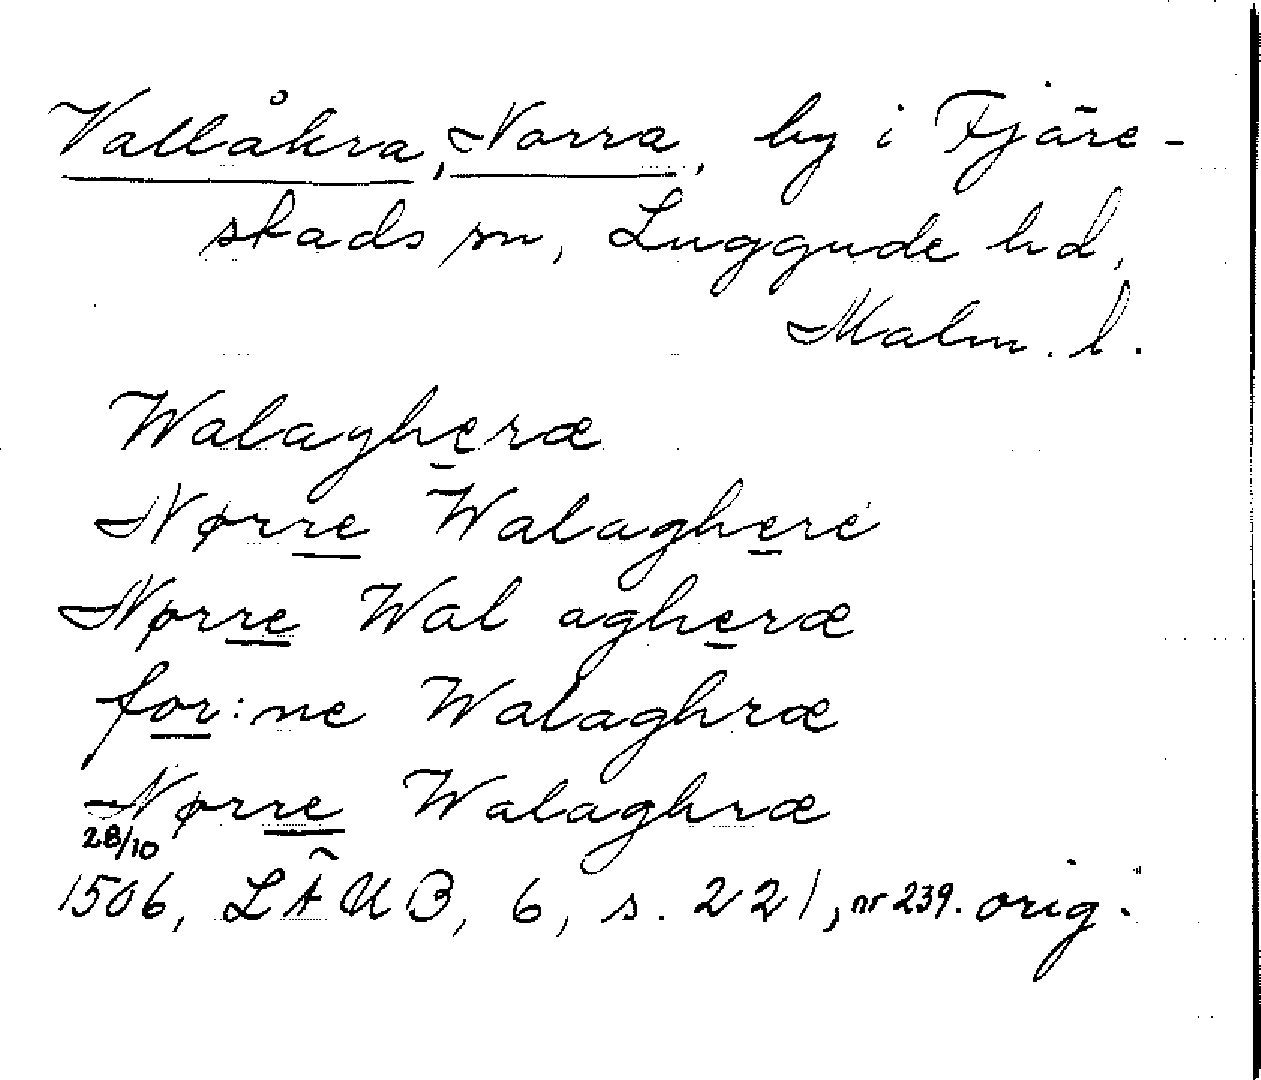 Vallåkra, Norra, by i Fjäre-
stads sn, Luggude hd,
Malm. l.
Walagheræ
Nørre Walaghere
Nørre Wal agheræ
for:ne Walaghræ
Nørre Walaghræ
28/10
1506, LÄUB, 6, s. 221, nr 239. orig.